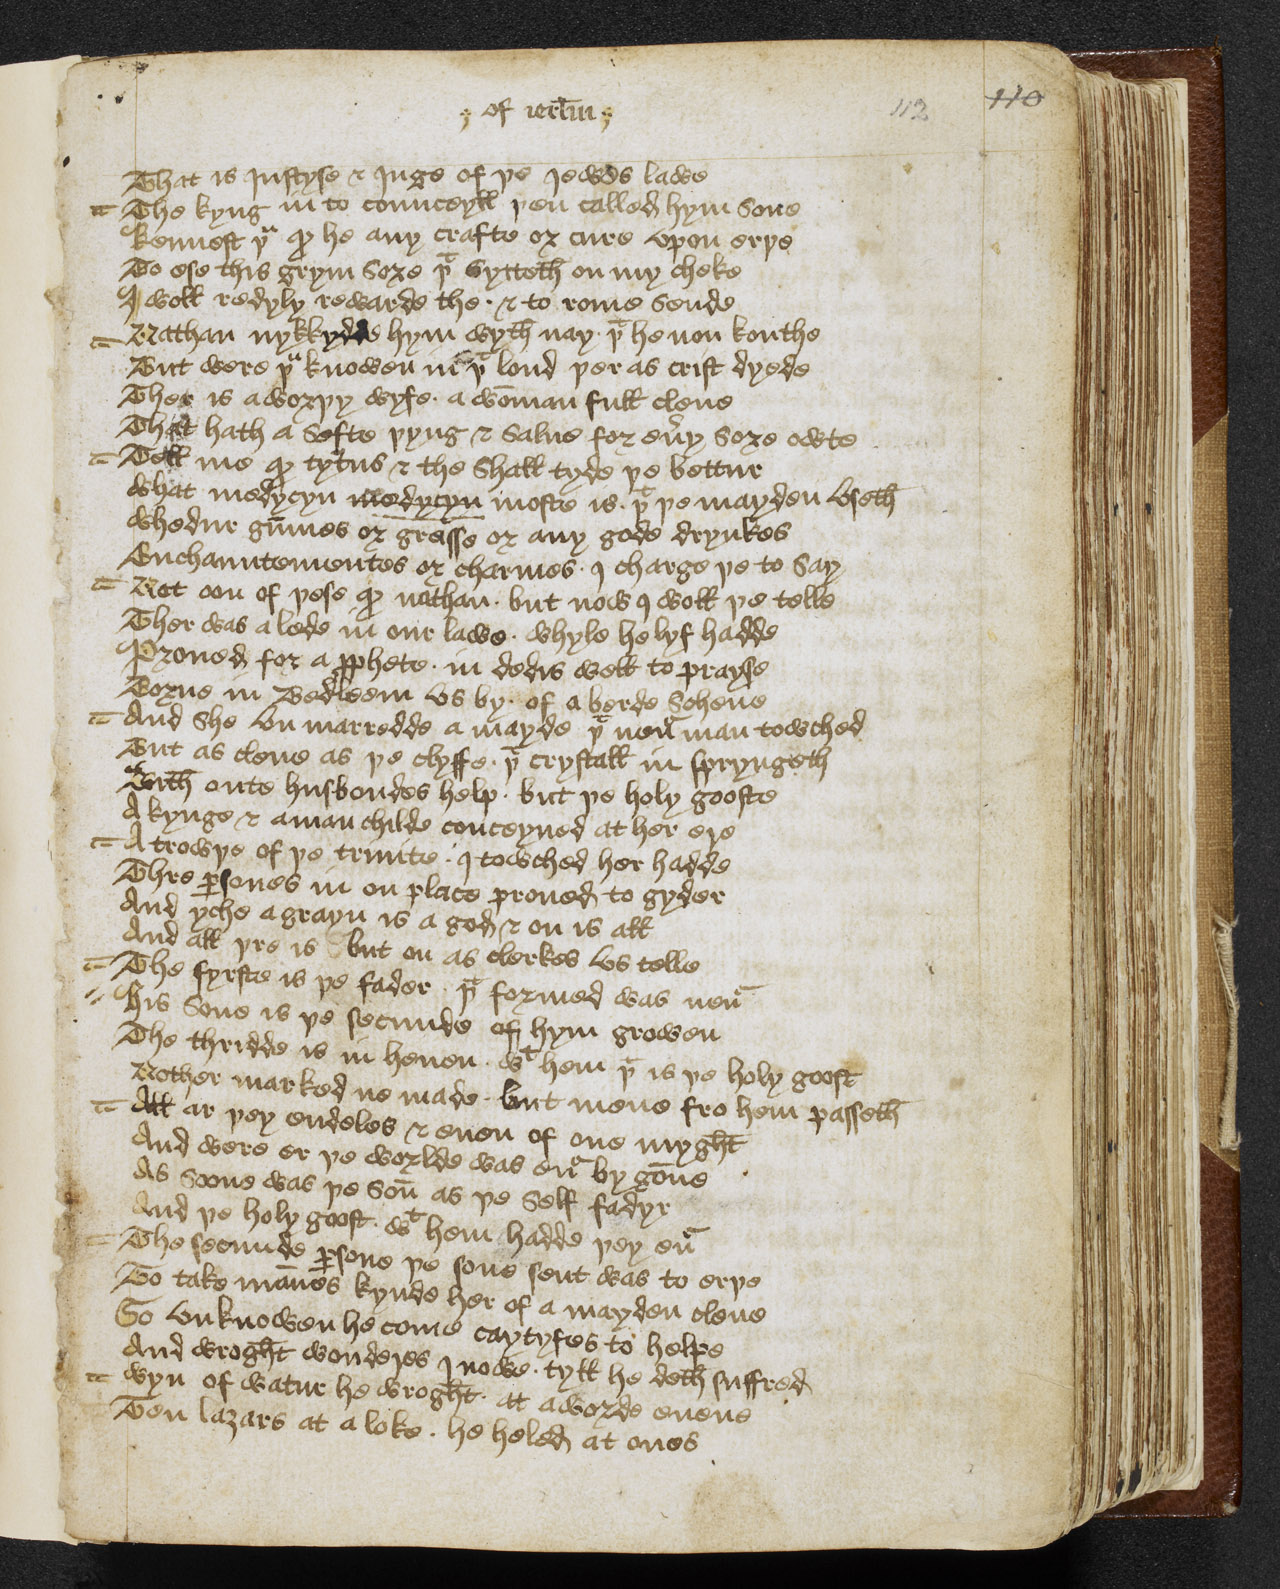 of ierlm
112 110
That is Justyse & Juge of þe Jewes lawe
The kyng in to counceyll þen called hym sone
kennest þu qd he any crafte or cure vpon erþe
To ese this grym sore þt sytteth on my cheke
I woll redyly rewarde the · & to rome sende
Nathan nykkyde hym wyth nay · þt he non kouthe
But were þu knowen in þt lond þer as crist dyede
Ther is a worþy wyfe · a woman full clene
That hath a softe þyng & salue for eu'y sore owte
Tell me qd tytus & the shall tyde þe bettur
what medycyn medycyn moste is · þt þe mayden vseth
whedur gūmes or grasse or any gode drynkes
Enchauntementes or charmes · I charge þe to say
Not oon of þese qd nathan · but now I woll þe telle
Ther was a lede in our lawe · whyle he lyf hadde
Proued for a pphete · in dedis well to prayse
Borne in Bedleem vs by · of a berde schene
And she vn marredde a mayde þt neu' man towched
But as clene as þe clyffe · þt crystall in spryngeth
With oute husbondes help · but þe holy gooste
A kynge & a man childe conceyued at her ere
A trowþe of þe trinite · I towched her hadde
Thre psones in on place proued to gyder
And yche a grayn is a god & on is all
And all þre is but on as clerkes vs telle
The fyrste is þe fader · þt formed was neu'
His sone is þe secunde of hym growen
The thridde is in heuen · wt hem þt is þe holy goost
Nother marked ne made · but mene fro hem passeth
All ar þey endeles & euen of one myght
And were er þe worlde was eu' by gōne
As soone was þe son as þe self fadyr
And þe holy goost · wt hem hadde þey eu'
The secunde psone þe sone sent was to erþe
To take mānes kynde her of a mayden clene
So vnknowen he come caytyfes to helpe
And wroght wonderes I nowe · tyll he deth suffred
wyn of watur he wroght · at a worde euene
Ten lazars at a loke · he heled at ones